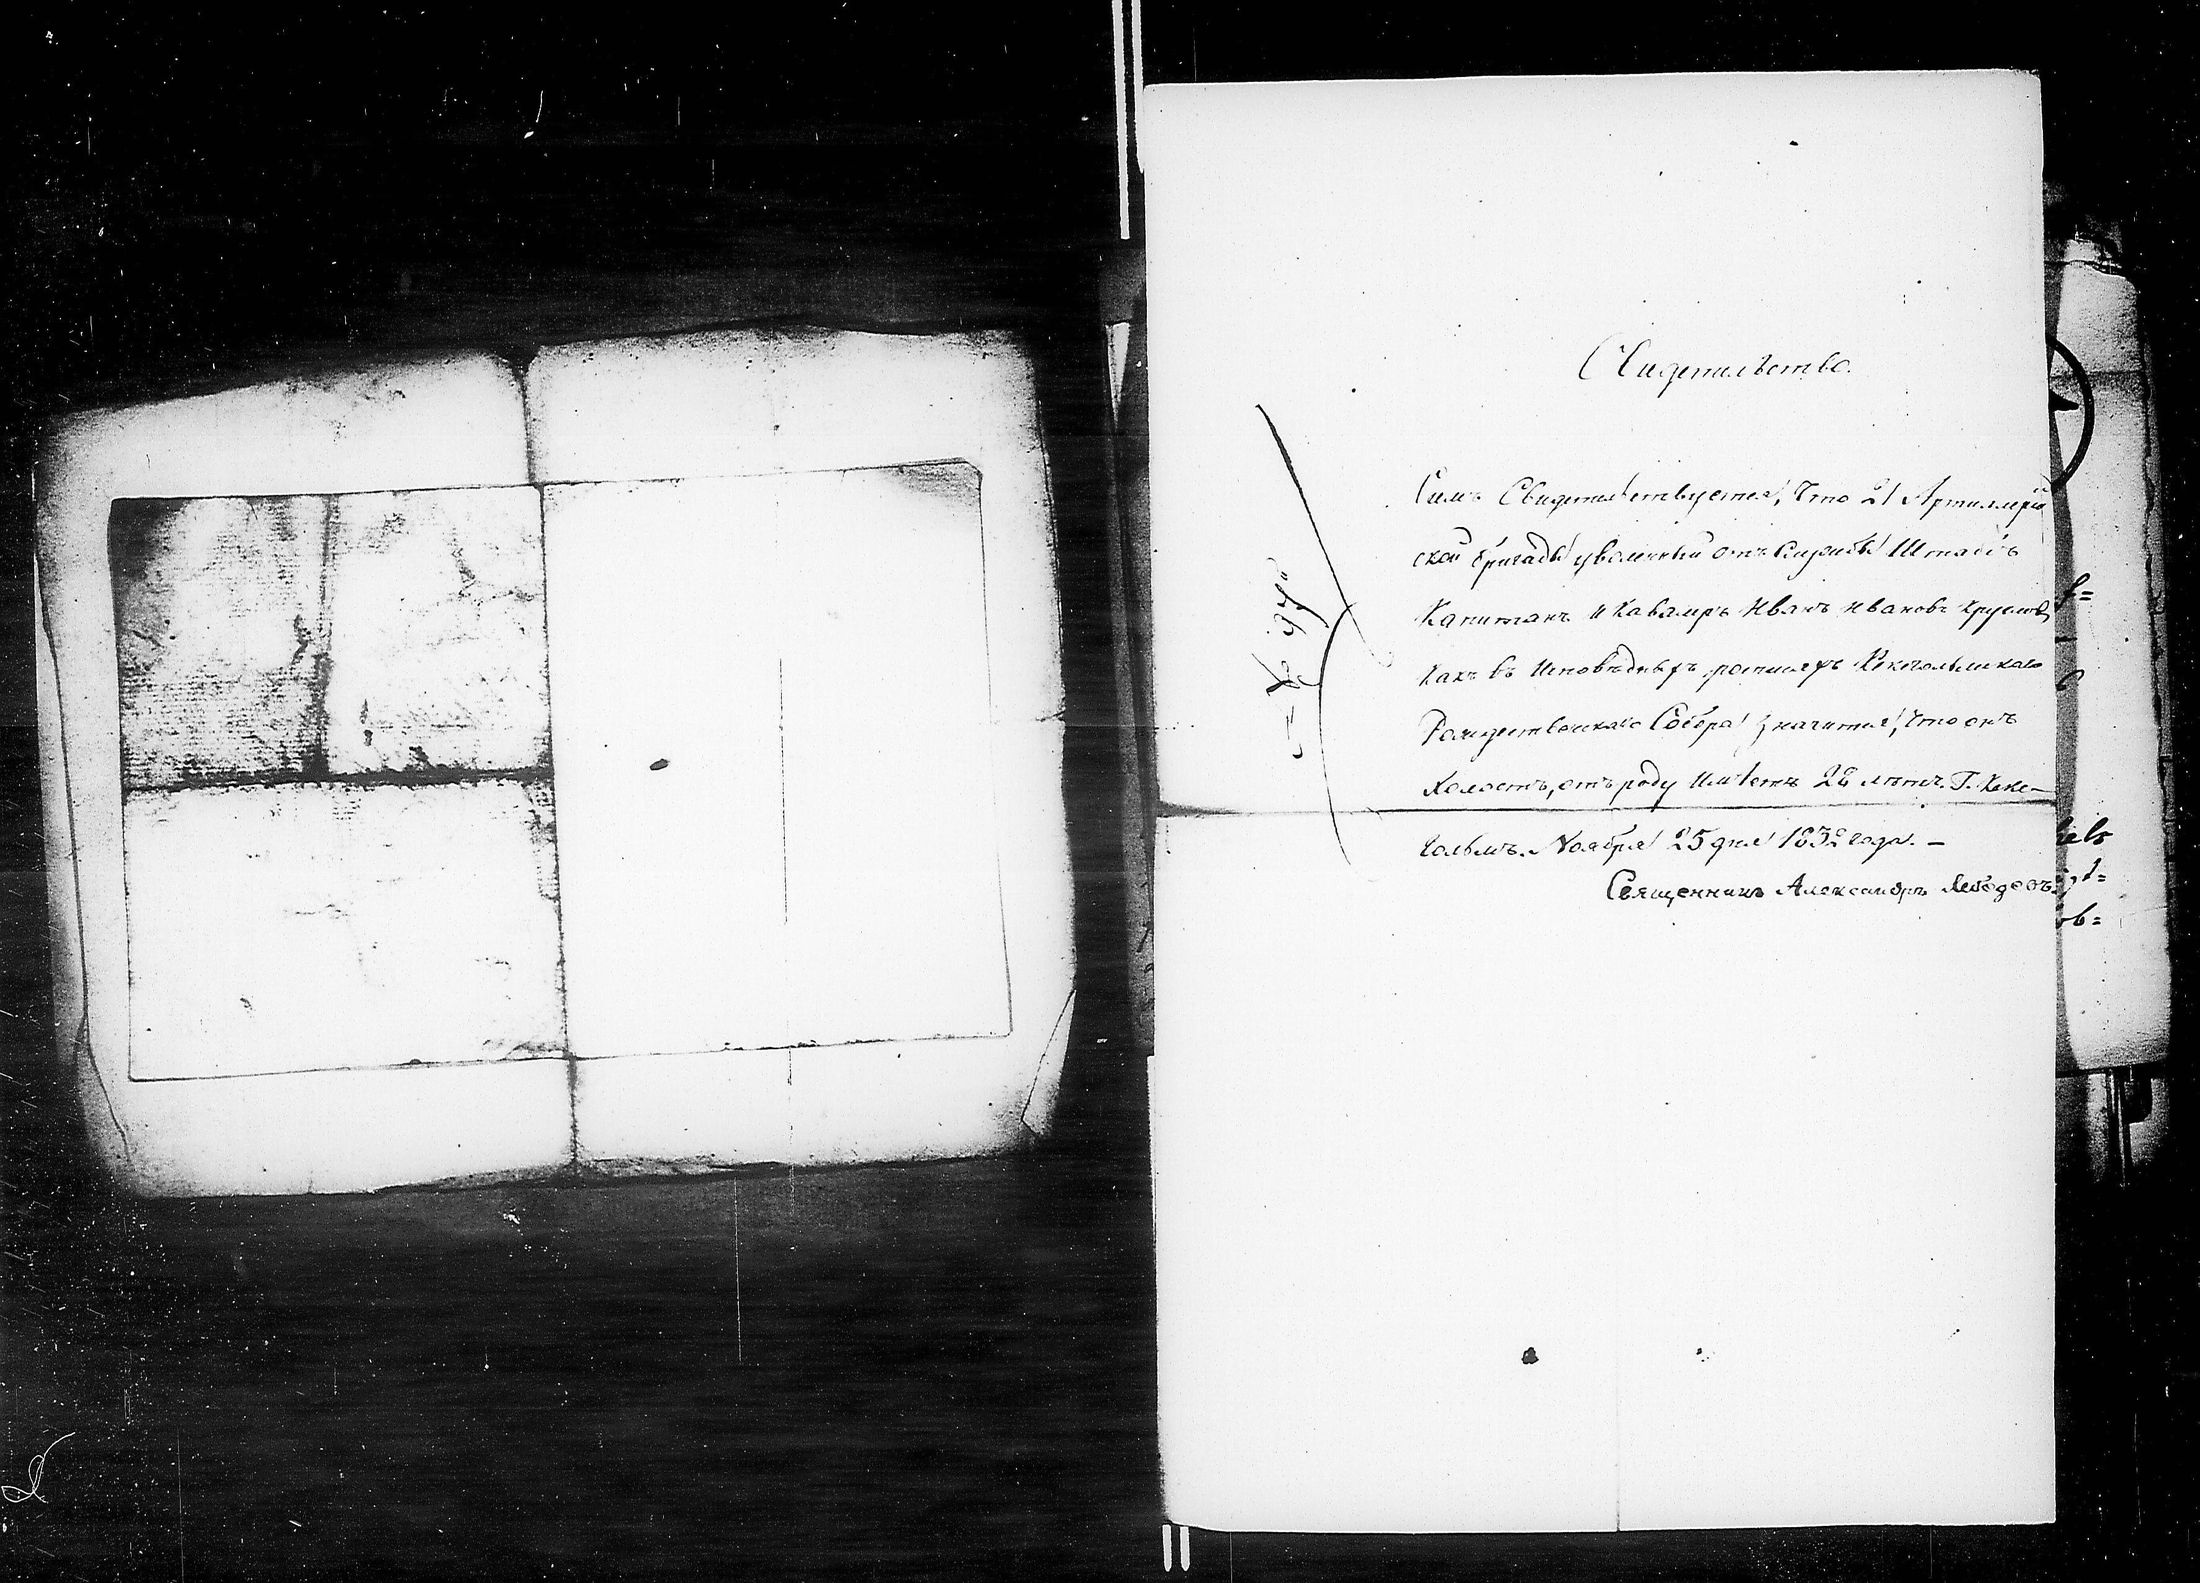 Свидетельство.
Симъ Свидетельствуется, что 21 Артиллерій
ской бригады уволенный отъ службы Штабсъ
Капитанъ и Кавалеръ Иванъ Ивановъ
какъ въ Исповѣдныхъ росписяхъ Кексгольмскаго
Рождественскаго Собора значится, что онъ
холостъ, отъ роду имѣетъ 28 лѣтъ. Г. Кекс-
гольмъ. Ноября 25 дня 1832 года. –
Священникъ Александръ